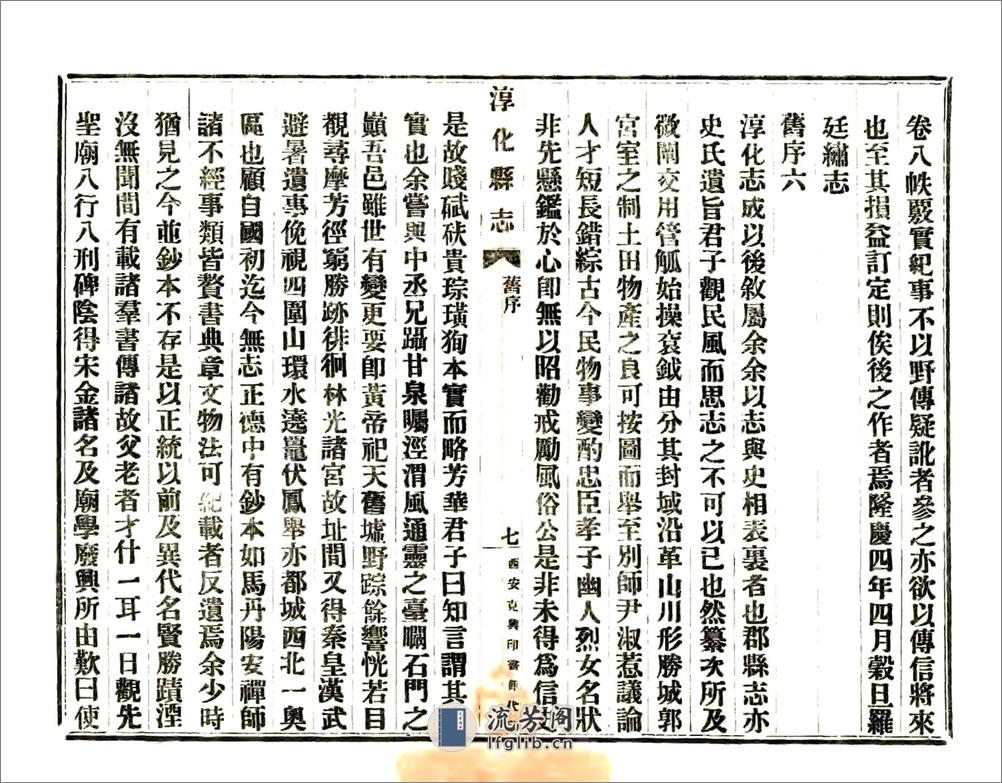 卷八帙覈實紀事不以野傳疑訛者參之亦欲以傳信將來
也至其損益訂定則俟後之作者焉隆慶四年四月穀旦羅
廷繡志
舊序六
淳化志成以後敘屬余余以志與史相表裏者也郡縣志亦
史氏遺旨君子觀民風而思志之不可以已也然纂次所及
微闡交用管觚始操袞鉞由分其封域沿革山川形勝城郭
宮室之制土田物產之良可按圖而舉至別師尹淑慝議論
人才短長錯綜古今民物事變酌忠臣孝子幽人烈女名狀
非先懸鑑於心卽無以昭勸戒勵風俗公是非未得爲信
淳化縣志
舊序
七
西安克興印書館代
是故賤碔砆貴琮璜狥本實而略芳華君子曰知言謂其
實也余嘗與中丞兄躡甘泉矚涇渭風通靈之臺瞯石門之
巔吾邑雖世有變更要卽黃帝祀天舊墟野踪餘響恍若目
覩尋摩芳徑窮勝跡徘徊林光諸宮故址間又得秦皇漢武
避暑遺事俛視四圍山環水遶鼉伏鳳舉亦都城西北一奧
區也顧自國初迄今無志正德中有鈔本如馬丹陽安禪師
諸不經事類皆贅書典章文物法可紀載者反遺焉余少時
猶見之今並鈔本不存是以正統以前及異代名賢勝蹟湮
沒無聞間有載諸羣書傳諸故父老者才什一耳一日觀先
聖廟八行八刑碑陰得宋金諸名及廟學廢興所由歎曰使
流芳閣
lfglib.cn